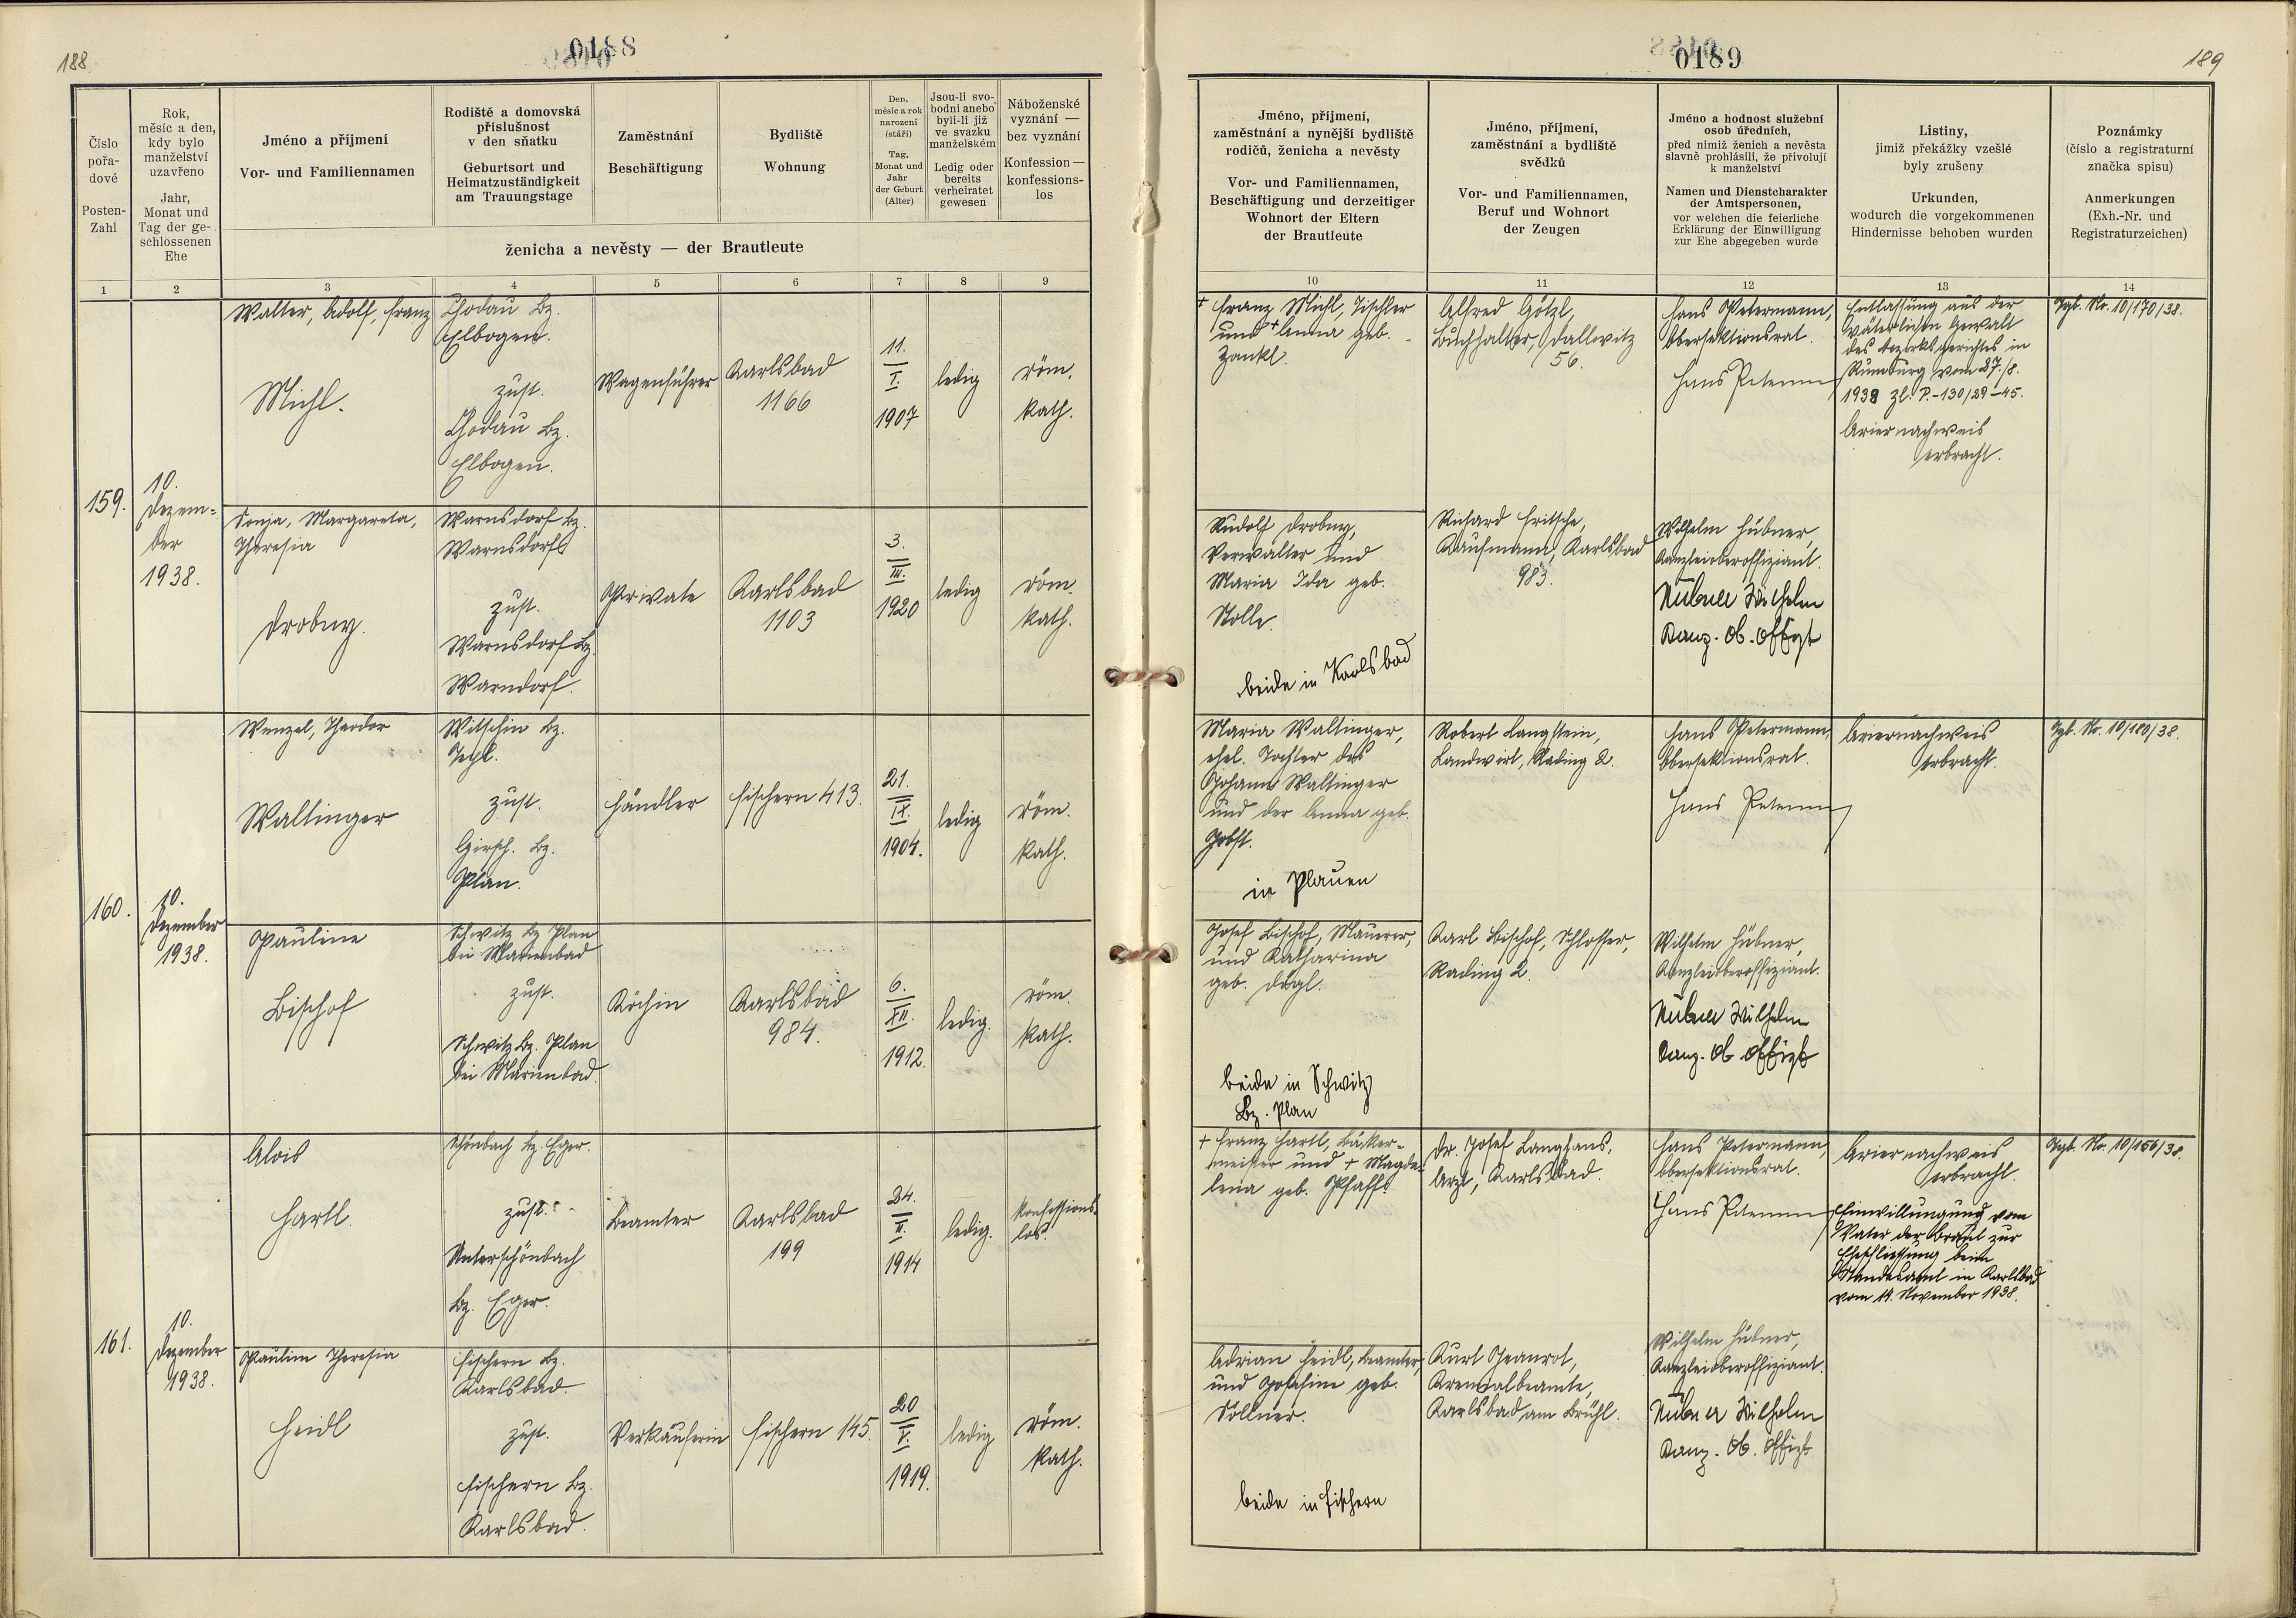 188
0188
Číslo
pořa-
dové
Posten-
Zahl
Rok,
měsíc a den,
kdy bylo
manželství
uzavřeno
Jahr,
Monat und
Tag der ge-
schlossenen
Ehe
Jméno a příjmení
Vor- und Familiennamen
Rodiště a domovská
příslušnost
v den sňatku
Geburtsort und
Heimatzuständigkeit
am Trauungstage
Zaměstnání
Beschäftigung
Bydliště
Wohnung
Den,
měsíc a rok
narození
(stáří)
Tag,
Monat und
Jahr
der Geburt
(Alter)
Jsou-li svo-
bodni anebo
byli-li již
ve svazku
manželském
Ledig oder
bereits
verheiratet
gewesen
Náboženské
vyznání —
bez vyznání
Konfession —
konfessions-
los
ženicha a nevěsty — der Brautleute
1 2 3 4 5 6 7 8 9
159.
10.
Dezem=
ber
1938.
Walter, Adolf, Franz
Michl.
Chodau Bz.
Elbogen.
zust.
Chodau Bz.
Elbogen.
Wagenführer
Karlsbad
1166
11.
I.
1907
ledig
röm.
kath.
Sonja, Margareta,
Theresia
Drobny.
Warnsdorf Bz.
Warnsdorf
zust.
Warnsdorf Bz.
Warndorf.
Private
Karlsbad
1103
3.
III.
1920
ledig
röm.
kath.
160.
10.
Dezember
1938.
Wenzel, Theodor
Waltinger
Witschin Bz.
Tepl.
zust.
Girsch. Bz.
Plan.
Händler
Fischern 413.
21.
IX.
1904.
ledig
röm.
kath.
Pauline
Bischof
Schwitz Bz Plan
bei Marienbad
zust.
Schwitz Bz. Plan
bei Marienbad.
Köchin
Karlsbad
984.
6.
XII.
1912.
ledig.
röm.
kath.
161.
10.
Dezember
1938.
Alois
Hartl.
Schönbach Bz. Eger.
zust.
Unterschönbach
Bz. Eger.
Beamter
Karlsbad
199
24.
II.
1914
ledig.
Konfessions-
los.
Paulina Theresia
Heidl
Fischern Bz.
Karlsbad.
zust.
Fischern Bz.
Karlsbad.
Verkäuferin
Fischern 145.
20
V.
1919.
ledig
röm.
kath.
0189
189
Jméno, příjmení,
zaměstnání a nynější bydliště
rodičů, ženicha a nevěsty
Vor- und Familiennamen,
Beschäftigung und derzeitiger
Wohnort der Eltern
der Brautleute
Jméno, příjmení,
zaměstnání a bydliště
svědků
Vor- und Familiennamen,
Beruf und Wohnort
der Zeugen
Jméno a hodnost služební
osob úředních,
před nimiž ženich a nevěsta
slavně prohlásili, že přivolují
k manželství
Namen und Dienstcharakter
der Amtspersonen,
vor welchen die feierliche
Erklärung der Einwilligung
zur Ehe abgegeben wurde
Listiny,
jimiž překážky vzešlé
byly zrušeny
Urkunden,
wodurch die vorgekommenen
Hindernisse behoben wurden
Poznámky
(číslo a registraturní
značka spisu)
Anmerkungen
(Exh.-Nr. und
Registraturzeichen)
10 11 12 13 14
+ Franz Michl, Tischler
und + Anna geb.
Zankl.
Alfred Götzl,
Buchhalter, Dallwitz
56.
Hans Petermann,
Obersektionsrat.
Hans Peterm
Entlassung aus der
väterlichen Gewalt
des Bezirksgerichtes in
Rumburg vom 27./8.
1938 Zl. P.-130/29-45.
Ariernachweis
erbracht.
Tgb. Nr. 10/170/38.
Rudolf Drobny,
Verwalter und
Maria Ida geb.
Stolle.
beide in Karlsbad
Richard Fritsche,
Kaufmann, Karlsbad
983.
Wilhelm Hübner,
Kanzleioberoffiziant.
Hübner Wilhelm
Kanz. Ob. Offizt
Maria Waltinger,
ehel. Tochter des
Johann Waltinger
und der Anna geb.
Jobst.
in Plauen
Robert Langstein,
Landwirt, Rading 2.
Hans Petermann
Obersektionsrat.
Hans Peterm
Ariernachweis
erbracht.
Tgb. Nr. 10/180/38.
Josef Bischof, Maurer,
und Katharina
geb. Dögl.
beide in Schwitz
Bz. Plan
Karl Bischof, Schlosser,
Rading 2.
Wilhelm Hübner,
Kanzleioberoffiziant.
Hübner Wilhelm
Kanz. Ob Offizt
+ Franz Hartl, Bäcker-
meister und + Magda-
lena geb. Pfaff.
Dr. Josef Langhans,
Arzt, Karlsbad.
Hans Petermann,
Obersektionsrat.
Hans Peterm
Ariernachweis
erbracht.
Einwilligung vom
Vater der Braut zur
Eheschliessung beim
Standesamt in Karlsbad
vom 14. November 1938.
Tgb. Nr. 10/156/38.
Adrian Heidl, Beamter,
und Josefine geb.
Söllner.
beide in Fischern
Kurt Jeanrot,
Karlsbad am Brühl.
Wilhelm Hübner,
Kanzleioberoffiziant.
Hübner Wilhelm
Kanz. Ob. Offizt